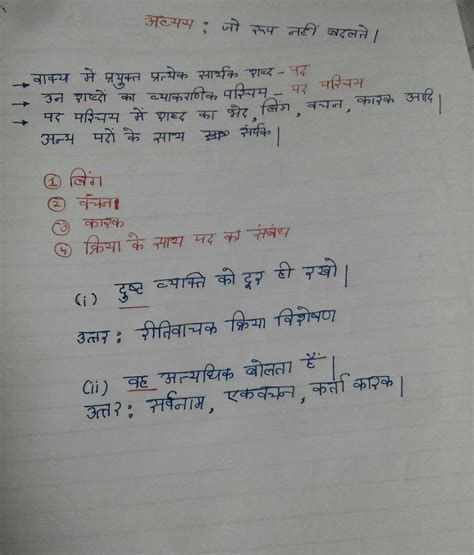 अव्यय : जो रूप नहीं बदलते।
→ वाक्य में प्रयुक्त प्रत्येक सार्थक शब्द - पद
→ उन शब्दों का व्याकरणिक परिचय - पद परिचय
→ पद परिचय में शब्द का भेद, लिंग, वचन, कारक आदि।
अन्य पदों के साथ संपर्क।
① लिंग
② वचन
③ कारक
④ क्रिया के साथ पद का संबंध
(i) दुष्ट व्यक्ति को दूर ही रखो।
उत्तर : रीतिवाचक क्रिया विशेषण
(ii) वह अत्यधिक बोलता है।
उत्तर : सर्वनाम, एकवचन, कर्ता कारक।